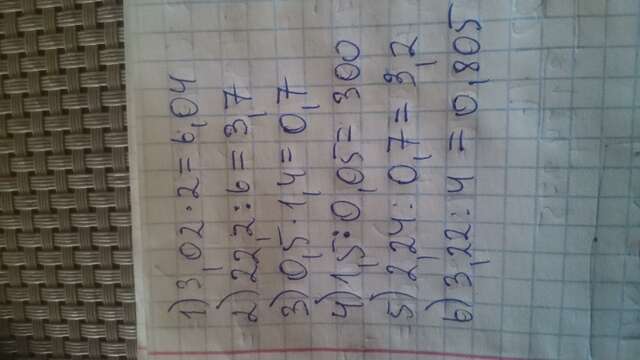 1) 3,02 · 2 = 6,04
2) 22,2 : 6 = 3,7
3) 0,5 · 1,4 = 0,7
4) 1,5 : 0,05 = 300
5) 2,24 : 0,7 = 3,2
6) 3,22 : 4 = 0,805